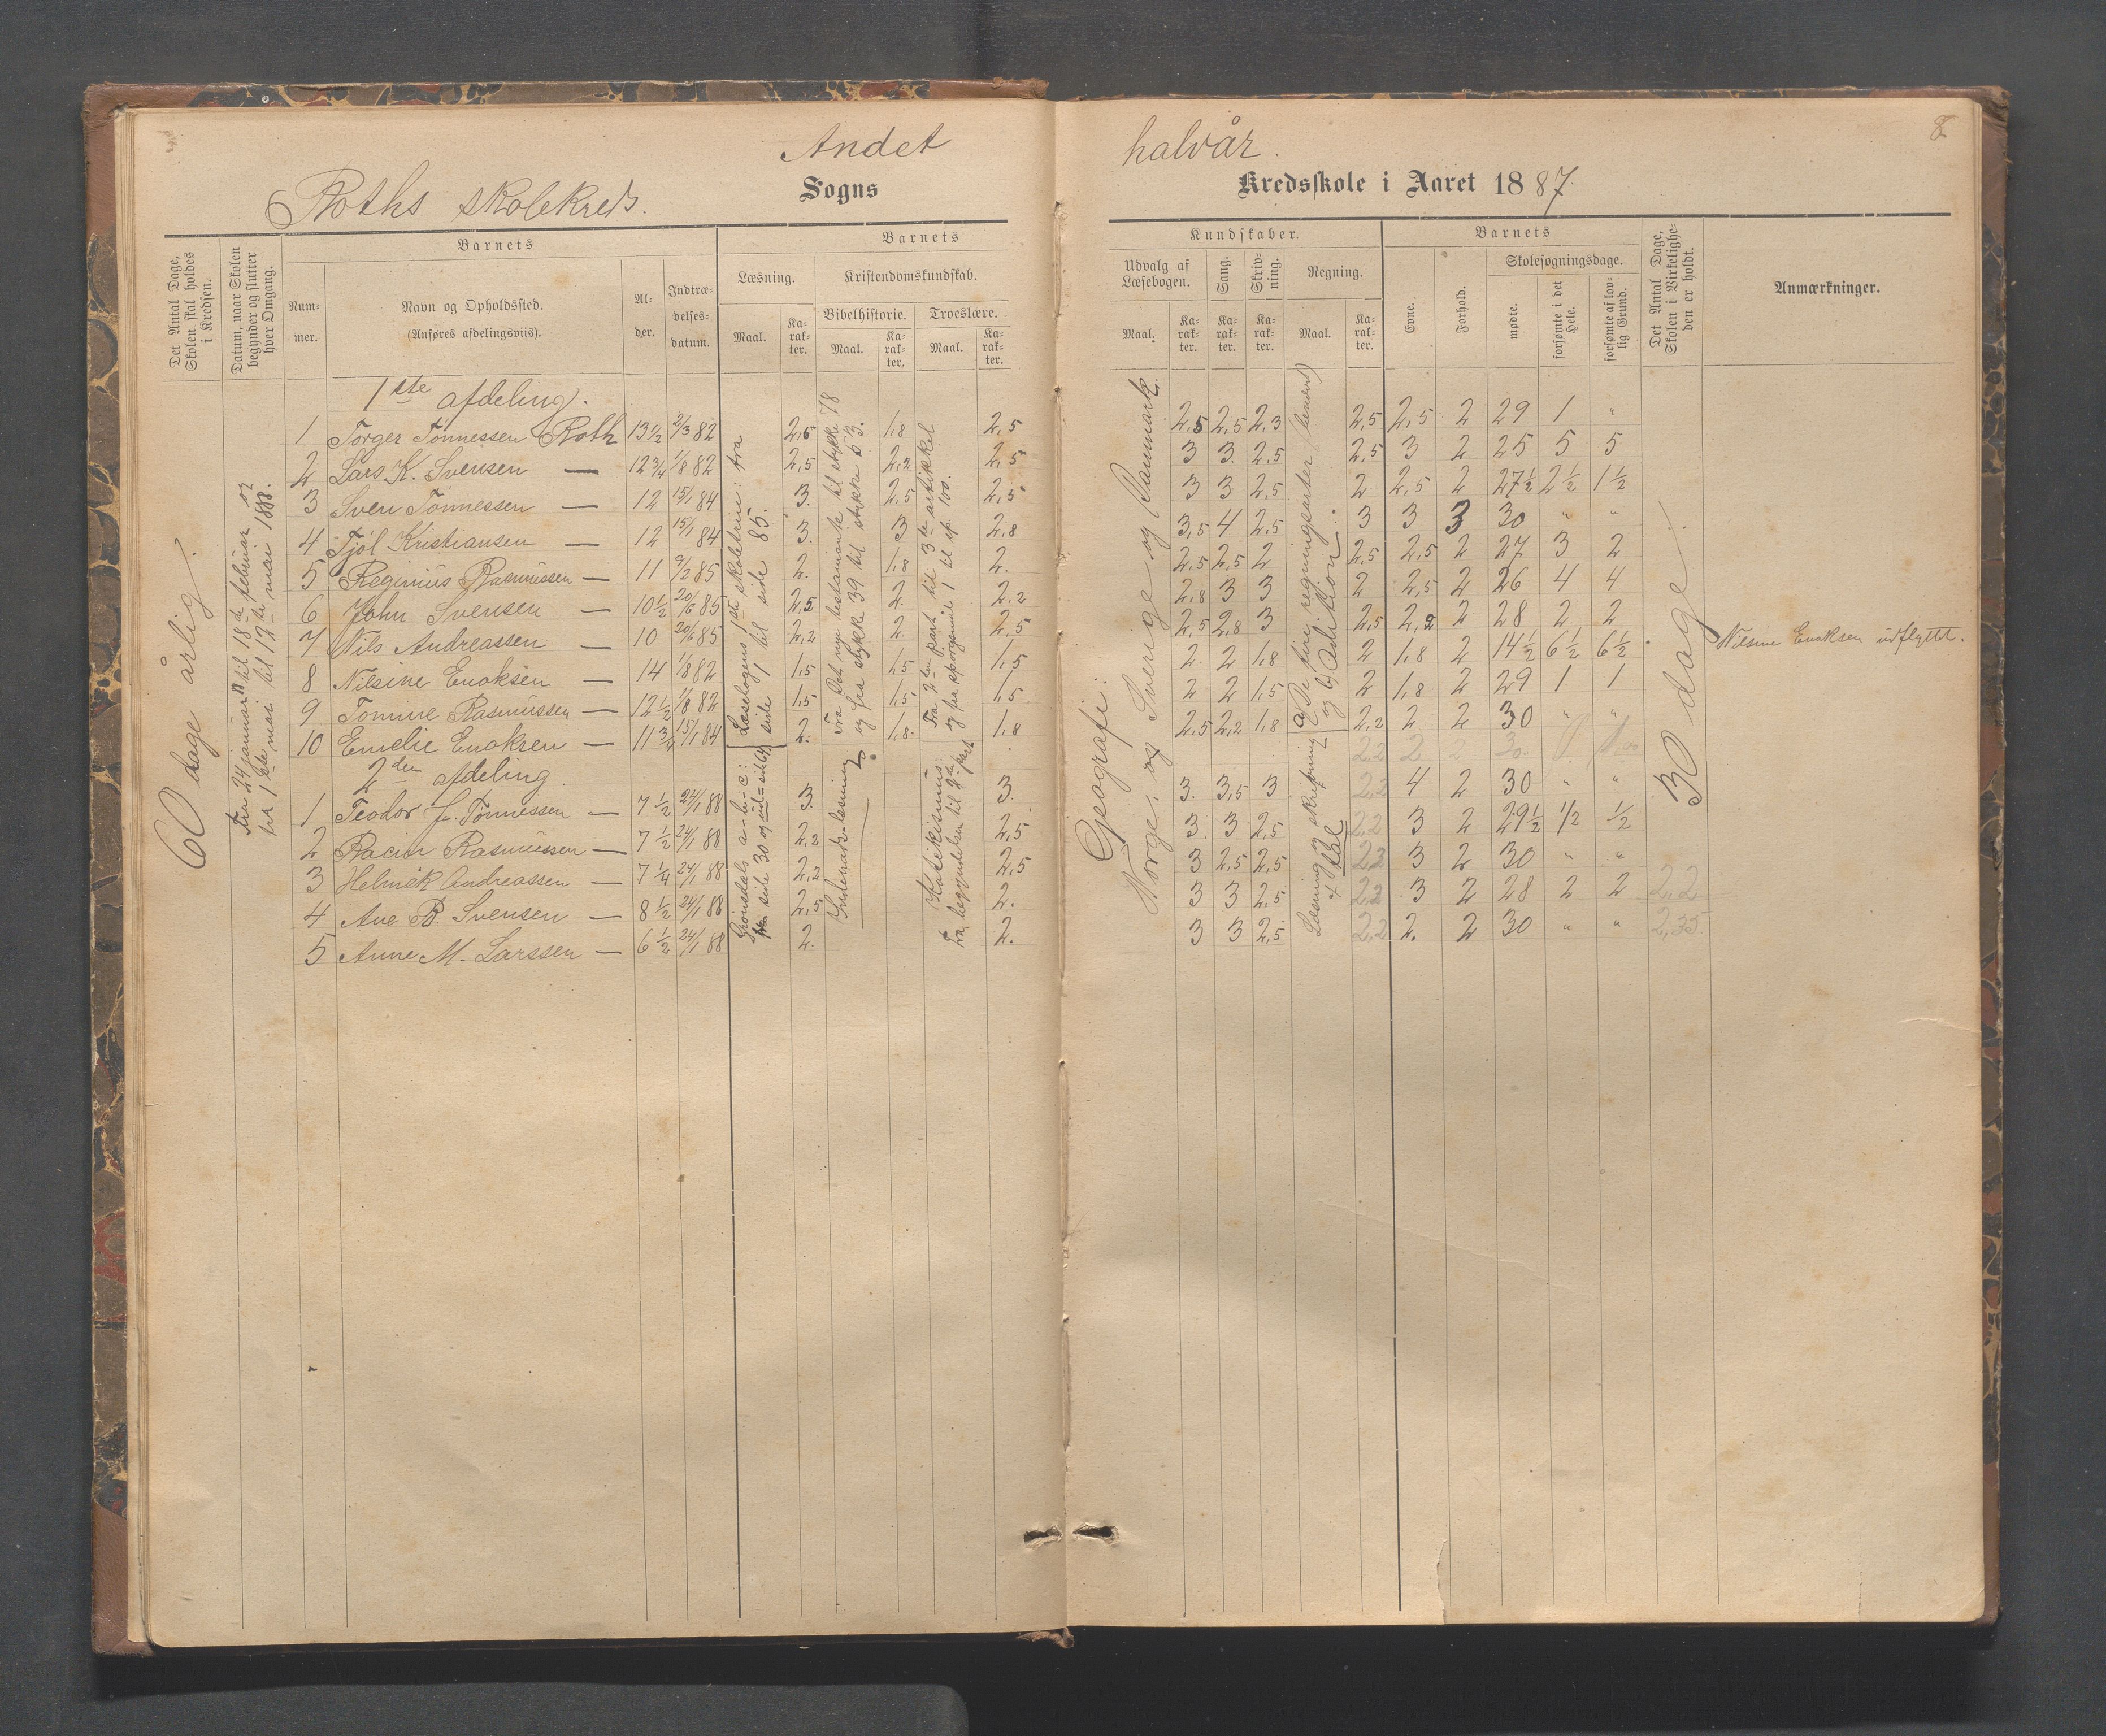 Andet halvår.
8
Roths skolekreds.
Sogns Kredsskole i Aaret 1887.
Det Antal Dage, Skolen skal holdes i Kredsen.
Datum, naar Skolen begynder og slutter hver Omgang.
Barnets
Nummer.
Navn og Opholdssted.
(Anføres afdelingsviis).
Alder.
Indtrædelsesdatum.
Barnets
Læsning.
Maal.
Karakter.
Kristendomskundskab.
Bibelhistorie.
Maal.
Karakter.
Troeslære.
Maal.
Karakter.
Kundskaber.
Udvalg af Læsebogen.
Maal.
Karakter.
Sang.
Karakter.
Skrivning.
Karakter.
Regning.
Maal.
Karakter.
Barnets
Evne.
Forhold.
Skolesøgningsdage.
mødte.
forsømte i det Hele.
forsømte af lovlig Grund.
Det Antal Dage, Skolen i Virkeligheden er holdt.
Anmærkninger.
60 dage årlig.
Fra 24 januar til 18de februar og
fra 1ste mai til 12te mai 1888.
Læsebogens 1st skoletrin: fra
side 1 til side 85.
Fra Det nye testamente til stykke 78
og fra stykke 39 til stykke 53.
Fra 2den part til 3de artikkel
og fra spørgsmål 1 til sp. 100.
Geografi:
Norge, og Sverige og Danmark.
a) De fire regningsarter (benævnt)
og b) Adition.
30 dage.
1ste afdeling.
1 Torger Tønnessen Roth 13½ 2/3 82 2,5 1,8 2,5 2,5 2,5 2,3 2,5 2,5 2 29 1 "
2 Lars K. Svensen — 12¾ 1/8 82 2,5 2,2 2,5 3 3. 2,5 2,5 3 2 25 5 5
3 Sven Tønnessen — 12 15/1 84 3. 2,5 2,5 3 3 2,5 2 2,5 2 27½ 2½ 1½
4 Tjøl Kristiansen — 12 15/1 84 3. 3 2,8 3,5 4 2,5 3 3 3 30 " "
5 Reginius Rasmussen — 11 9/2 85 2. 1,8 2. 2,5 2,5 2 2,5 2,5 2 27 3 2
6 John Svensen — 10½ 20/6 85 2,5 2. 2,2 2,8 3 3 2 2,5 2 26 4 4
7 Nils Andreassen — 10 20/6 85 2,2 2 2,5 2,5 2,8 3 2,5 2,2 2 28 2 2
8 Nilsine Enoksen — 14 1/8 82 1,5 1,5 1,5 2. 2 1,8 2 1,8 2 14½ 6½ 6½ Nilsine Enoksen udflyttet.
9 Tomine Rasmussen — 12½ 1/8 82 1,5 1,5 1,5 2 2 1,5 2 1,8 2 29 1 1
10 Emelie Enoksen — 11¾ 15/1 84 2. 1,8. 1,8 2,5 2,2 1,8 2,2 2 2 30 " "
2den afdeling.
Grønsdals a-b-c:
side 30 og
Indenads-læsning
Katekismus:
Fra begyndelsen til 2den part
Læsning og skrivning
4 tal
1 Teodor J. Tønnessen — 7½ 24/1 88 3. 3. 3. 3,5 3 2,2 4 2 30 " "
2 Racin Rasmussen — 7½ 24/1 88 2,2 2,5 3. 3 2,5 2,2 3 2 29½ ½ ½
3 Helmik Andreassen — 7¼ 24/1 88 2,2 2,5 3 2,5 2,5 2,2 3 2 30 " "
4 Ane B. Svensen — 8½ 24/1 88 2,5 2. 3 3 2,5 2,2 3 2 28 2 2 2,2
5 Anne M. Larssen — 6½ 24/1 88 2. 2. 3 3 2,5 2,2 2. 2 30 " " 2,35